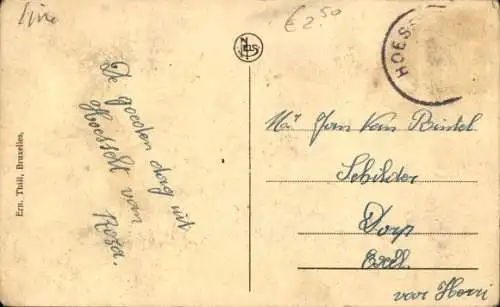 € 2.50
HOES
De goeden dag uit
Hoesselt van
Roza.
Ern. Thill, Bruxelles.
NELS
Mr Jan Van Bintel
Schilder
Dorp
Exel.
voor Henri